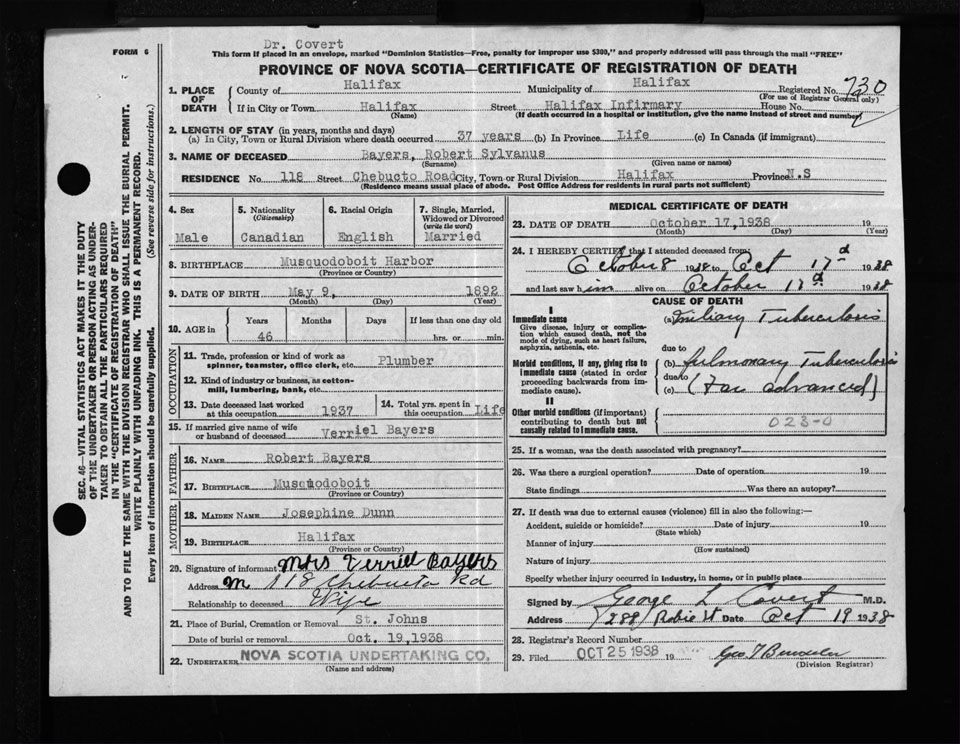 FORM 6
Dr. Covert
This form if placed in an envelope, marked "Dominion Statistics—Free, penalty for improper use $300," and properly addressed will pass through the mail "FREE"
PROVINCE OF NOVA SCOTIA—CERTIFICATE OF REGISTRATION OF DEATH
SEC. 46—VITAL STATISTICS ACT MAKES IT THE DUTY
OF THE UNDERTAKER OR PERSON ACTING AS UNDER-
TAKER TO OBTAIN ALL THE PARTICULARS REQUIRED
IN THE "CERTIFICATE OF REGISTRATION OF DEATH"
AND TO FILE THE SAME WITH THE DIVISION REGISTRAR WHO SHALL ISSUE THE BURIAL PERMIT.
WRITE PLAINLY WITH UNFADING INK. THIS IS A PERMANENT RECORD.
Every item of information should be carefully supplied. (See reverse side for instructions.)
1. PLACE OF DEATH
County of Halifax Municipality of Halifax Registered No. 730
(For use of Registrar General only)
If in City or Town Halifax Street Halifax Infirmary House No.
(Name) (If death occurred in a hospital or institution, give the name instead of street and number)
2. LENGTH OF STAY (in years, months and days)
(a) In City, Town or Rural Division where death occurred 37 years (b) In Province Life (c) In Canada (if immigrant)
3. NAME OF DECEASED Bayers, Robert Sylvanus
(Surname) (Given name or names)
RESIDENCE No. 118 Street Chebucto Road City, Town or Rural Division Halifax Province N.S
(Residence means usual place of abode. Post Office Address for residents in rural parts not sufficient)
4. Sex Male
5. Nationality (Citizenship) Canadian
6. Racial Origin English
7. Single, Married, Widowed or Divorced (write the word) Married
8. BIRTHPLACE Musquodoboit Harbor
(Province or Country)
9. DATE OF BIRTH May 9, 1892
(Month) (Day) (Year)
10. AGE in Years Months Days If less than one day old
46 hrs. or min.
OCCUPATION
11. Trade, profession or kind of work as spinner, teamster, office clerk, etc. Plumber
12. Kind of industry or business, as cotton-mill, lumbering, bank, etc.
13. Date deceased last worked at this occupation 1937
14. Total yrs. spent in this occupation Life
15. If married give name of wife or husband of deceased Verriel Bayers
FATHER
16. NAME Robert Bayers
17. BIRTHPLACE Musquodoboit
(Province or Country)
MOTHER
18. MAIDEN NAME Josephine Dunn
19. BIRTHPLACE Halifax
(Province or Country)
20. Signature of informant Mrs Verriel Bayers
Address 118 Chebucto Rd
Relationship to deceased Wife
21. Place of Burial, Cremation or Removal St. Johns
Date of burial or removal Oct. 19,1938
22. UNDERTAKER NOVA SCOTIA UNDERTAKING CO.
(Name and address)
MEDICAL CERTIFICATE OF DEATH
23. DATE OF DEATH October 17,1938 19
(Month) (Day) (Year)
24. I HEREBY CERTIFY that I attended deceased from:
October 8 1938 to Oct 17 1938
and last saw him alive on October 1938
CAUSE OF DEATH
I
Immediate cause
Give disease, injury or complication which caused death, not the mode of dying, such as heart failure, asphyxia, asthenia, etc.
(a) Miliary Tuberculosis
due to
Morbid conditions, if any, giving rise to immediate cause (stated in order proceeding backwards from immediate cause).
(b) pulmonary Tuberculosis
due to
(c) (Far advanced)
II
Other morbid conditions (if important) contributing to death but not causally related to immediate cause.
023-0
25. If a woman, was the death associated with pregnancy?
26. Was there a surgical operation? Date of operation 19
State findings Was there an autopsy?
27. If death was due to external causes (violence) fill in also the following:—
Accident, suicide or homicide? Date of injury 19
(State which)
Manner of injury
(How sustained)
Nature of injury
Specify whether injury occurred in industry, in home, or in public place
Signed by George L Covert M.D.
Address 288 Robie St Date Oct 19 1938
28. Registrar's Record Number
29. Filed OCT 25 1938 19
(Division Registrar)